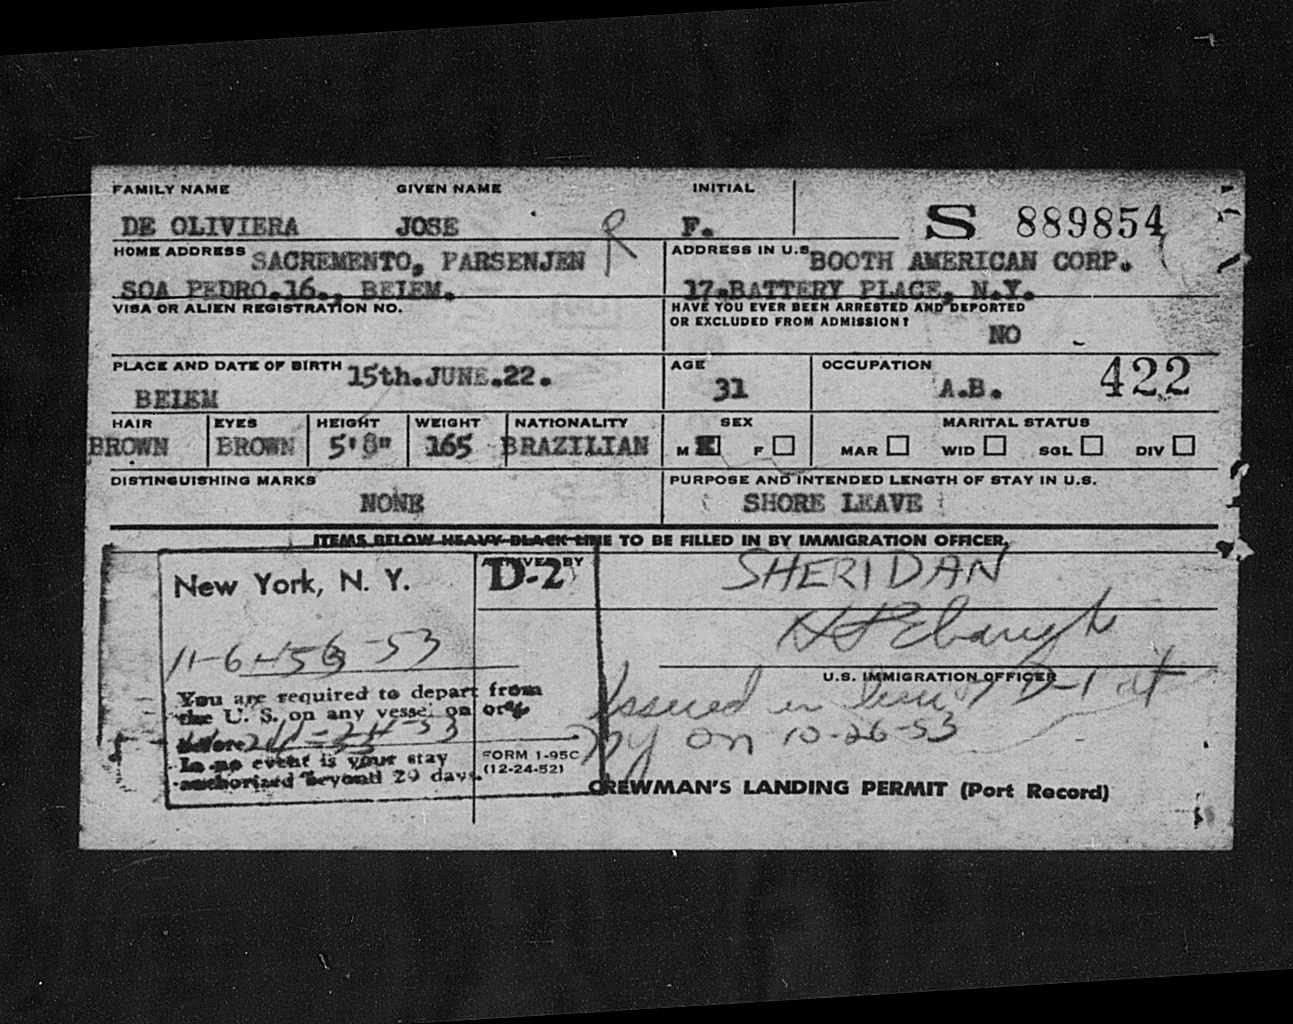 FAMILY NAME GIVEN NAME INITIAL
DE OLIVIERA JOSE R F. S 889854
HOME ADDRESS SACREMENTO, PARSENJEN
SOA PEDRO.16., BEIEM.
ADDRESS IN U.S. BOOTH AMERICAN CORP.
17.BATTERY PLACE, N.Y.
VISA OR ALIEN REGISTRATION NO.
HAVE YOU EVER BEEN ARRESTED AND DEPORTED
OR EXCLUDED FROM ADMISSION?
NO
PLACE AND DATE OF BIRTH 15th.JUNE.22.
BEIEM
AGE
31
OCCUPATION
A.B. 422
HAIR EYES HEIGHT WEIGHT NATIONALITY SEX MARITAL STATUS
BROWN BROWN 5'8" 165 BRAZILIAN M X F MAR WID SGL DIV
DISTINGUISHING MARKS
NONE
PURPOSE AND INTENDED LENGTH OF STAY IN U.S.
SHORE LEAVE
ITEMS BELOW HEAVY BLACK LINE TO BE FILLED IN BY IMMIGRATION OFFICER.
New York, N. Y.
D-2
SHERIDAN
11-6 -53
U.S. IMMIGRATION OFFICER
You are required to depart from
the U. S. on any vessel on or
before
In no event is your stay
authorized beyond 29 days.
Issued in lieu of D-1 at
NY on 10-26-53
FORM I-95C
(12-24-52)
CREWMAN'S LANDING PERMIT (Port Record)